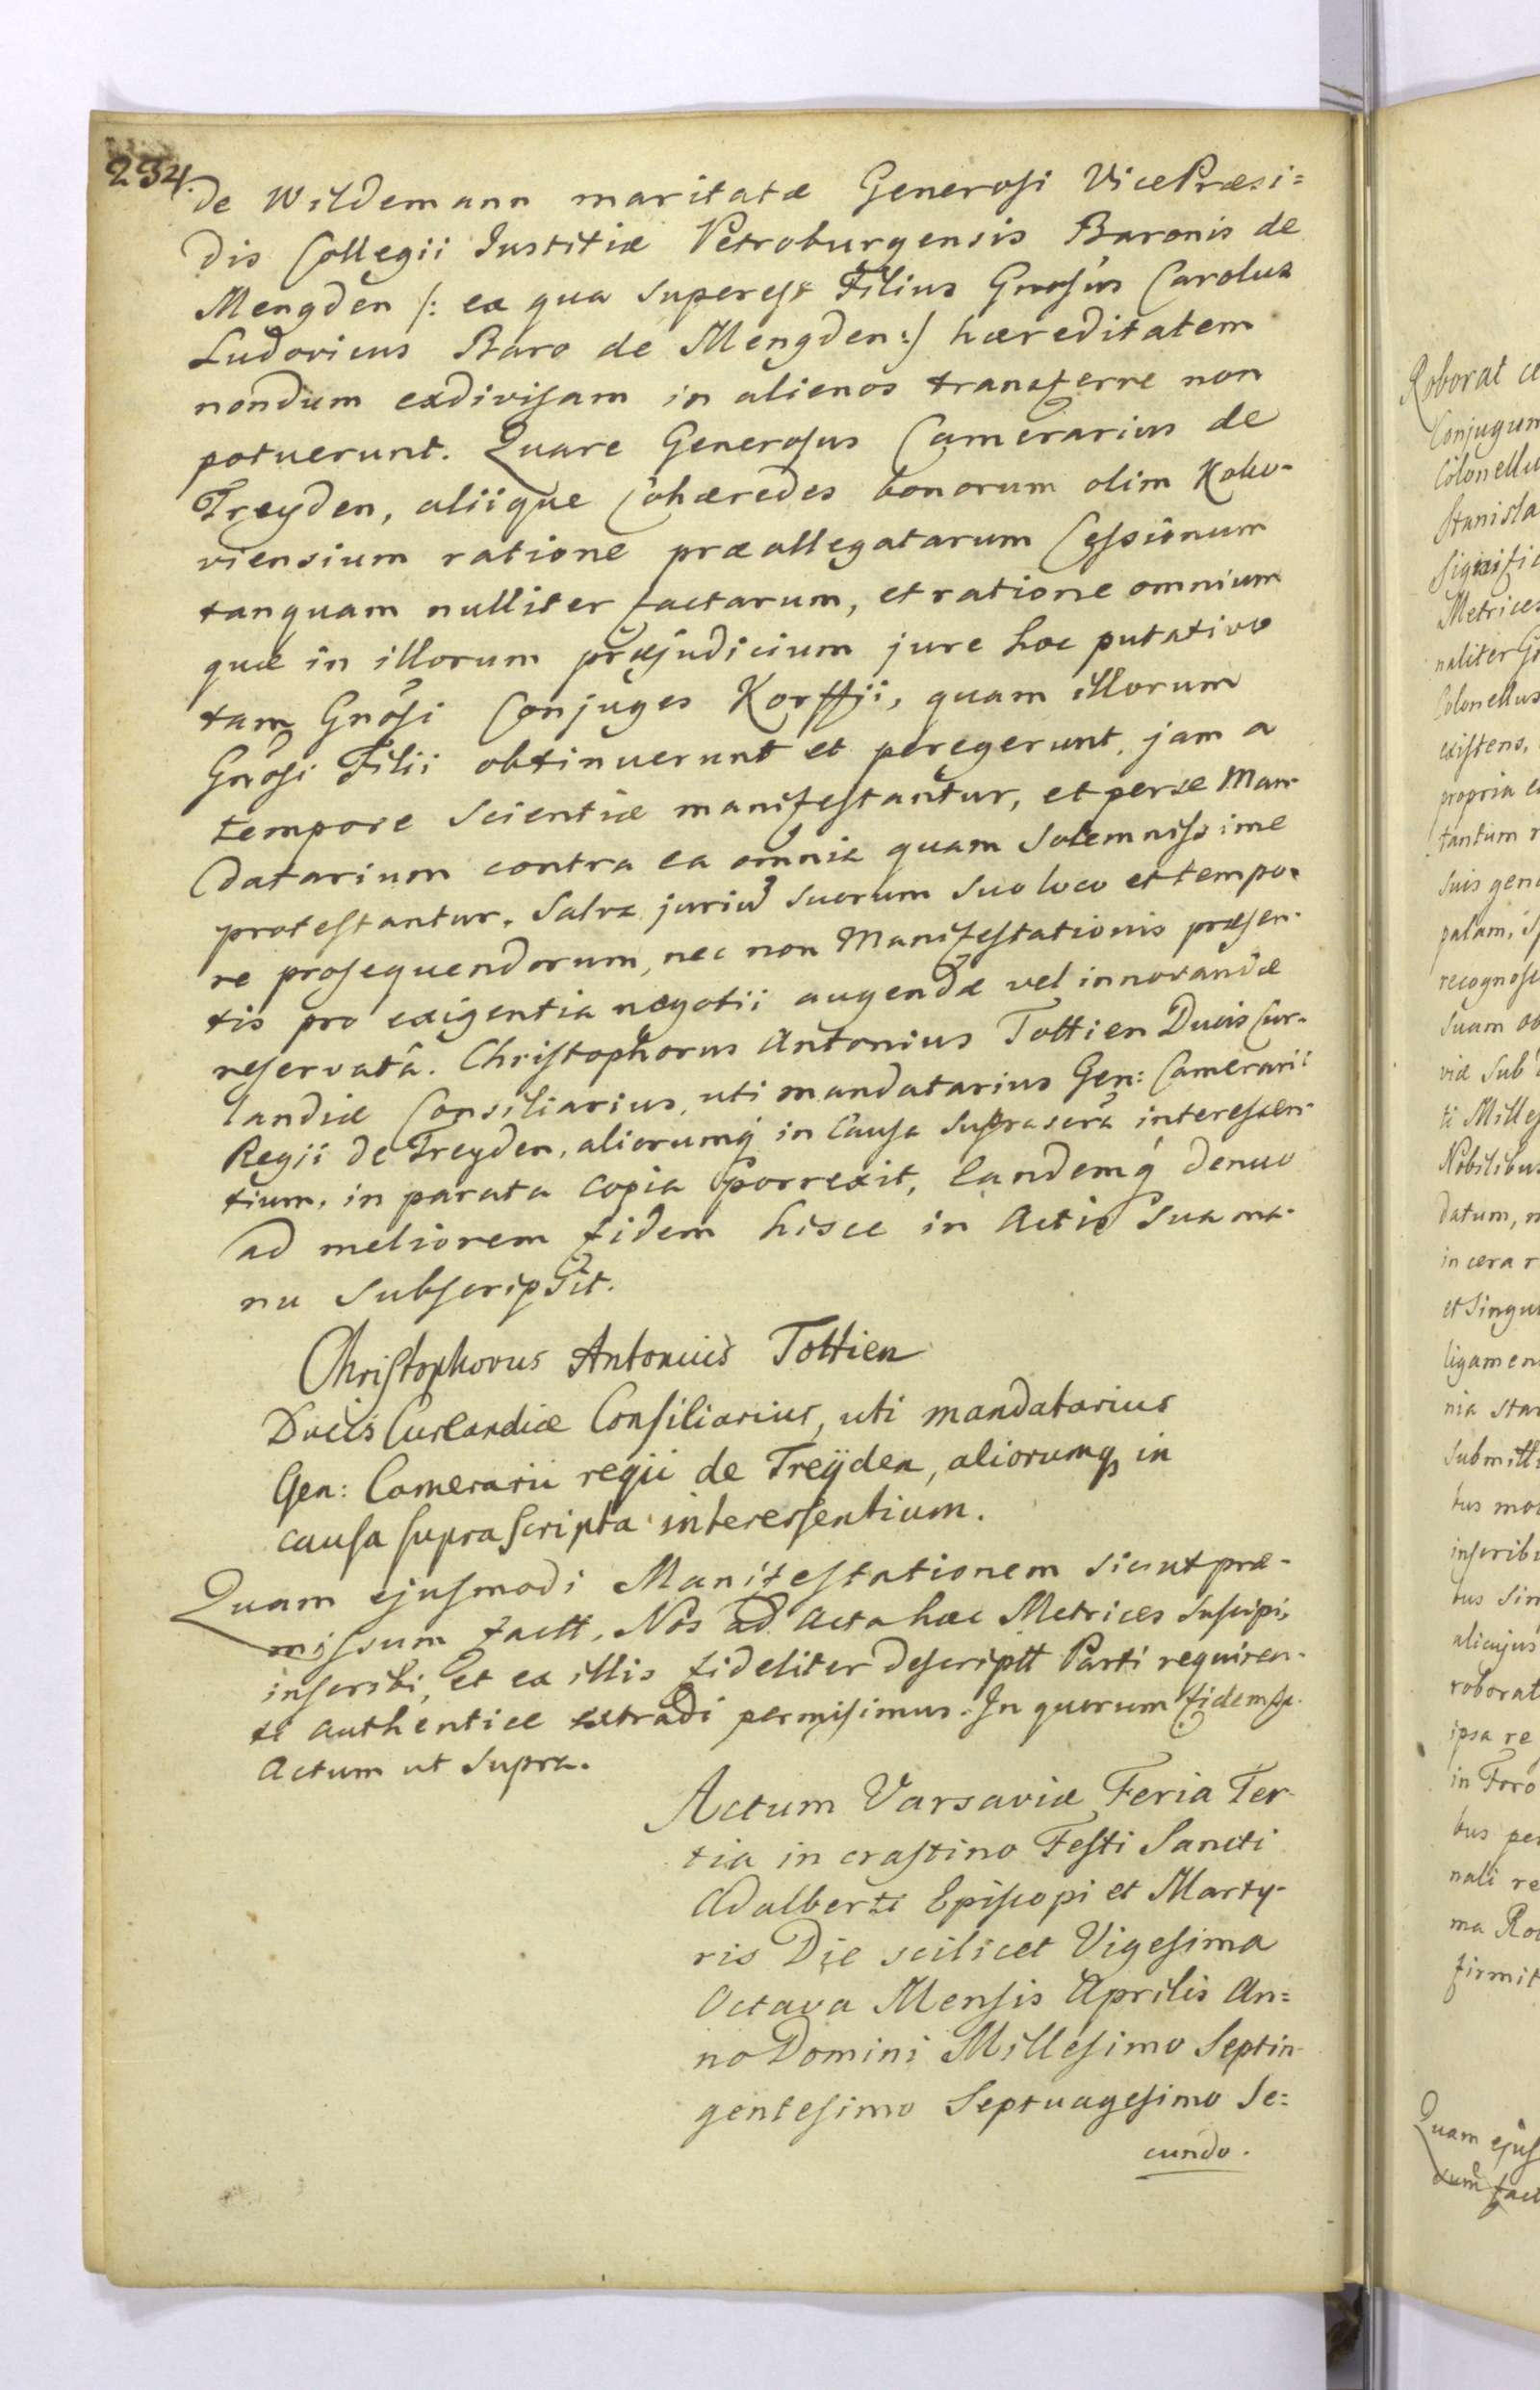 234.
de Wildemann maritatæ Generosi VicePræsi=
dis Collegii Iustitiæ Petroburgensis Baronis de
Mengden /: ex qua superest Filius Gnosûs Carolus
Ludovicus Baro de Mengden :/ hæreditatem
nondum exdivisam in alienos transferre non
potuerunt. Quare Generosus Camerarius de
Treyden, aliique Cohæredes bonorum olim Koku-
viensium ratione præallegatarum Cessionum
tanquam nulliter factarum, et ratione omnium
quæ in illorum præjudicium jure hoc putativo
tam Gnôsi Conjuges Korffii, quam illorum
Gnôsi Filii obtinuerunt et peregerunt, jam a
tempore scientiæ manifestantur, et per se Man-
datarium contra ea omnia quam solemnissime
protestantur, salva juriũ suorum suo loco et tempo-
re prosequendorum, nec non Manifestationis præsen-
tis pro exigentia negotii augendæ vel innovandæ
reservatâ. Christophorus Antonius Tottien Ducis Cur-
landiæ Consiliarius, uti mandatarius Gen: Camerarii
Regii de Treyden, aliorumq́ in Causa suprascrâ interessen-
tium, in parata copia porrexit, Eandemq́ denuo
ad meliorem fidem hisce in Actis sua ma-
nu subscripsit.
Christophorus Antonius Tottien
Ducis Curlandiæ Consiliarius, uti mandatarius
Gen: Camerarii regii de Treÿden, aliorumq; in
causa suprascripta interessentium.
Quam ejusmodi Manifestationem sicut præ-
missum factt, Nos ad Acta hæc Metrices suscipi,
inscribi, et ex illis fideliter descriptt Parti requiren-
ti authentice extradi permisimus. In quorum fidem
Actum ut supra.
Actum Varsaviæ Feria Ter-
tia in crastino Festi Sancti
Adalberti Episcopi et Marty-
ris Die scilicet Vigesima
Octava Mensis Aprilis An=
no Domini Millesimo Septin-
gentesimo Septuagesimo Se=
cundo.
Roborat
Conjugum
Colonellu
Stanisla
signific
Metrices
naliter
Colonellus
existens,
propria
tantum
suis gen
palam,
recognosc
suam
viæ sub
ti Milles
Nobilibus
datum,
in cera
et singu
ligamen
nia
submitt
tus
inscrib
tus
alicujus
roborat
ipsa re
in Foro
bus
nali re
ma
firmit
Quam ejus